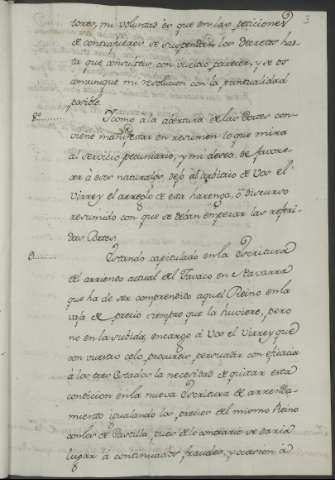 3
tores, mi voluntad es que en las peticiones
de contrafuero se suspendan los decretos has-
ta que consulteis, con vuestro parecer, y se os
comunique mi resolucion con la puntualidad
posible.
8º......... Y como a la abertura de las Cortes con-
viene manifestar en resumen lo que mira
al servicio pecuniario, y mi deseo de favore-
cer à esos naturales, dejo al advitrio de Vos el
Virrey el arreglo de esta harenga, ò discurso
resumido con que se deban empezar las referi-
das Cortes.
9........ Estando capitulado en la Escritura
del arriendo actual del Tavaco en Navarra
que ha de ser comprendido aquel Reino en la
vaja de precio siempre que la huviere, pero
no en la suvida, encargo à Vos el Virrey que
con vuestro celo procureis persuadir con eficacia
à los tres Estados la necesidad de quitar esta
condicion en la nueva Escritura de arrenda-
miento igualando los precios del mismo Reino
con los de Castilla, pues de lo contrario se daria
lugar à continuados fraudes, y ocasion à